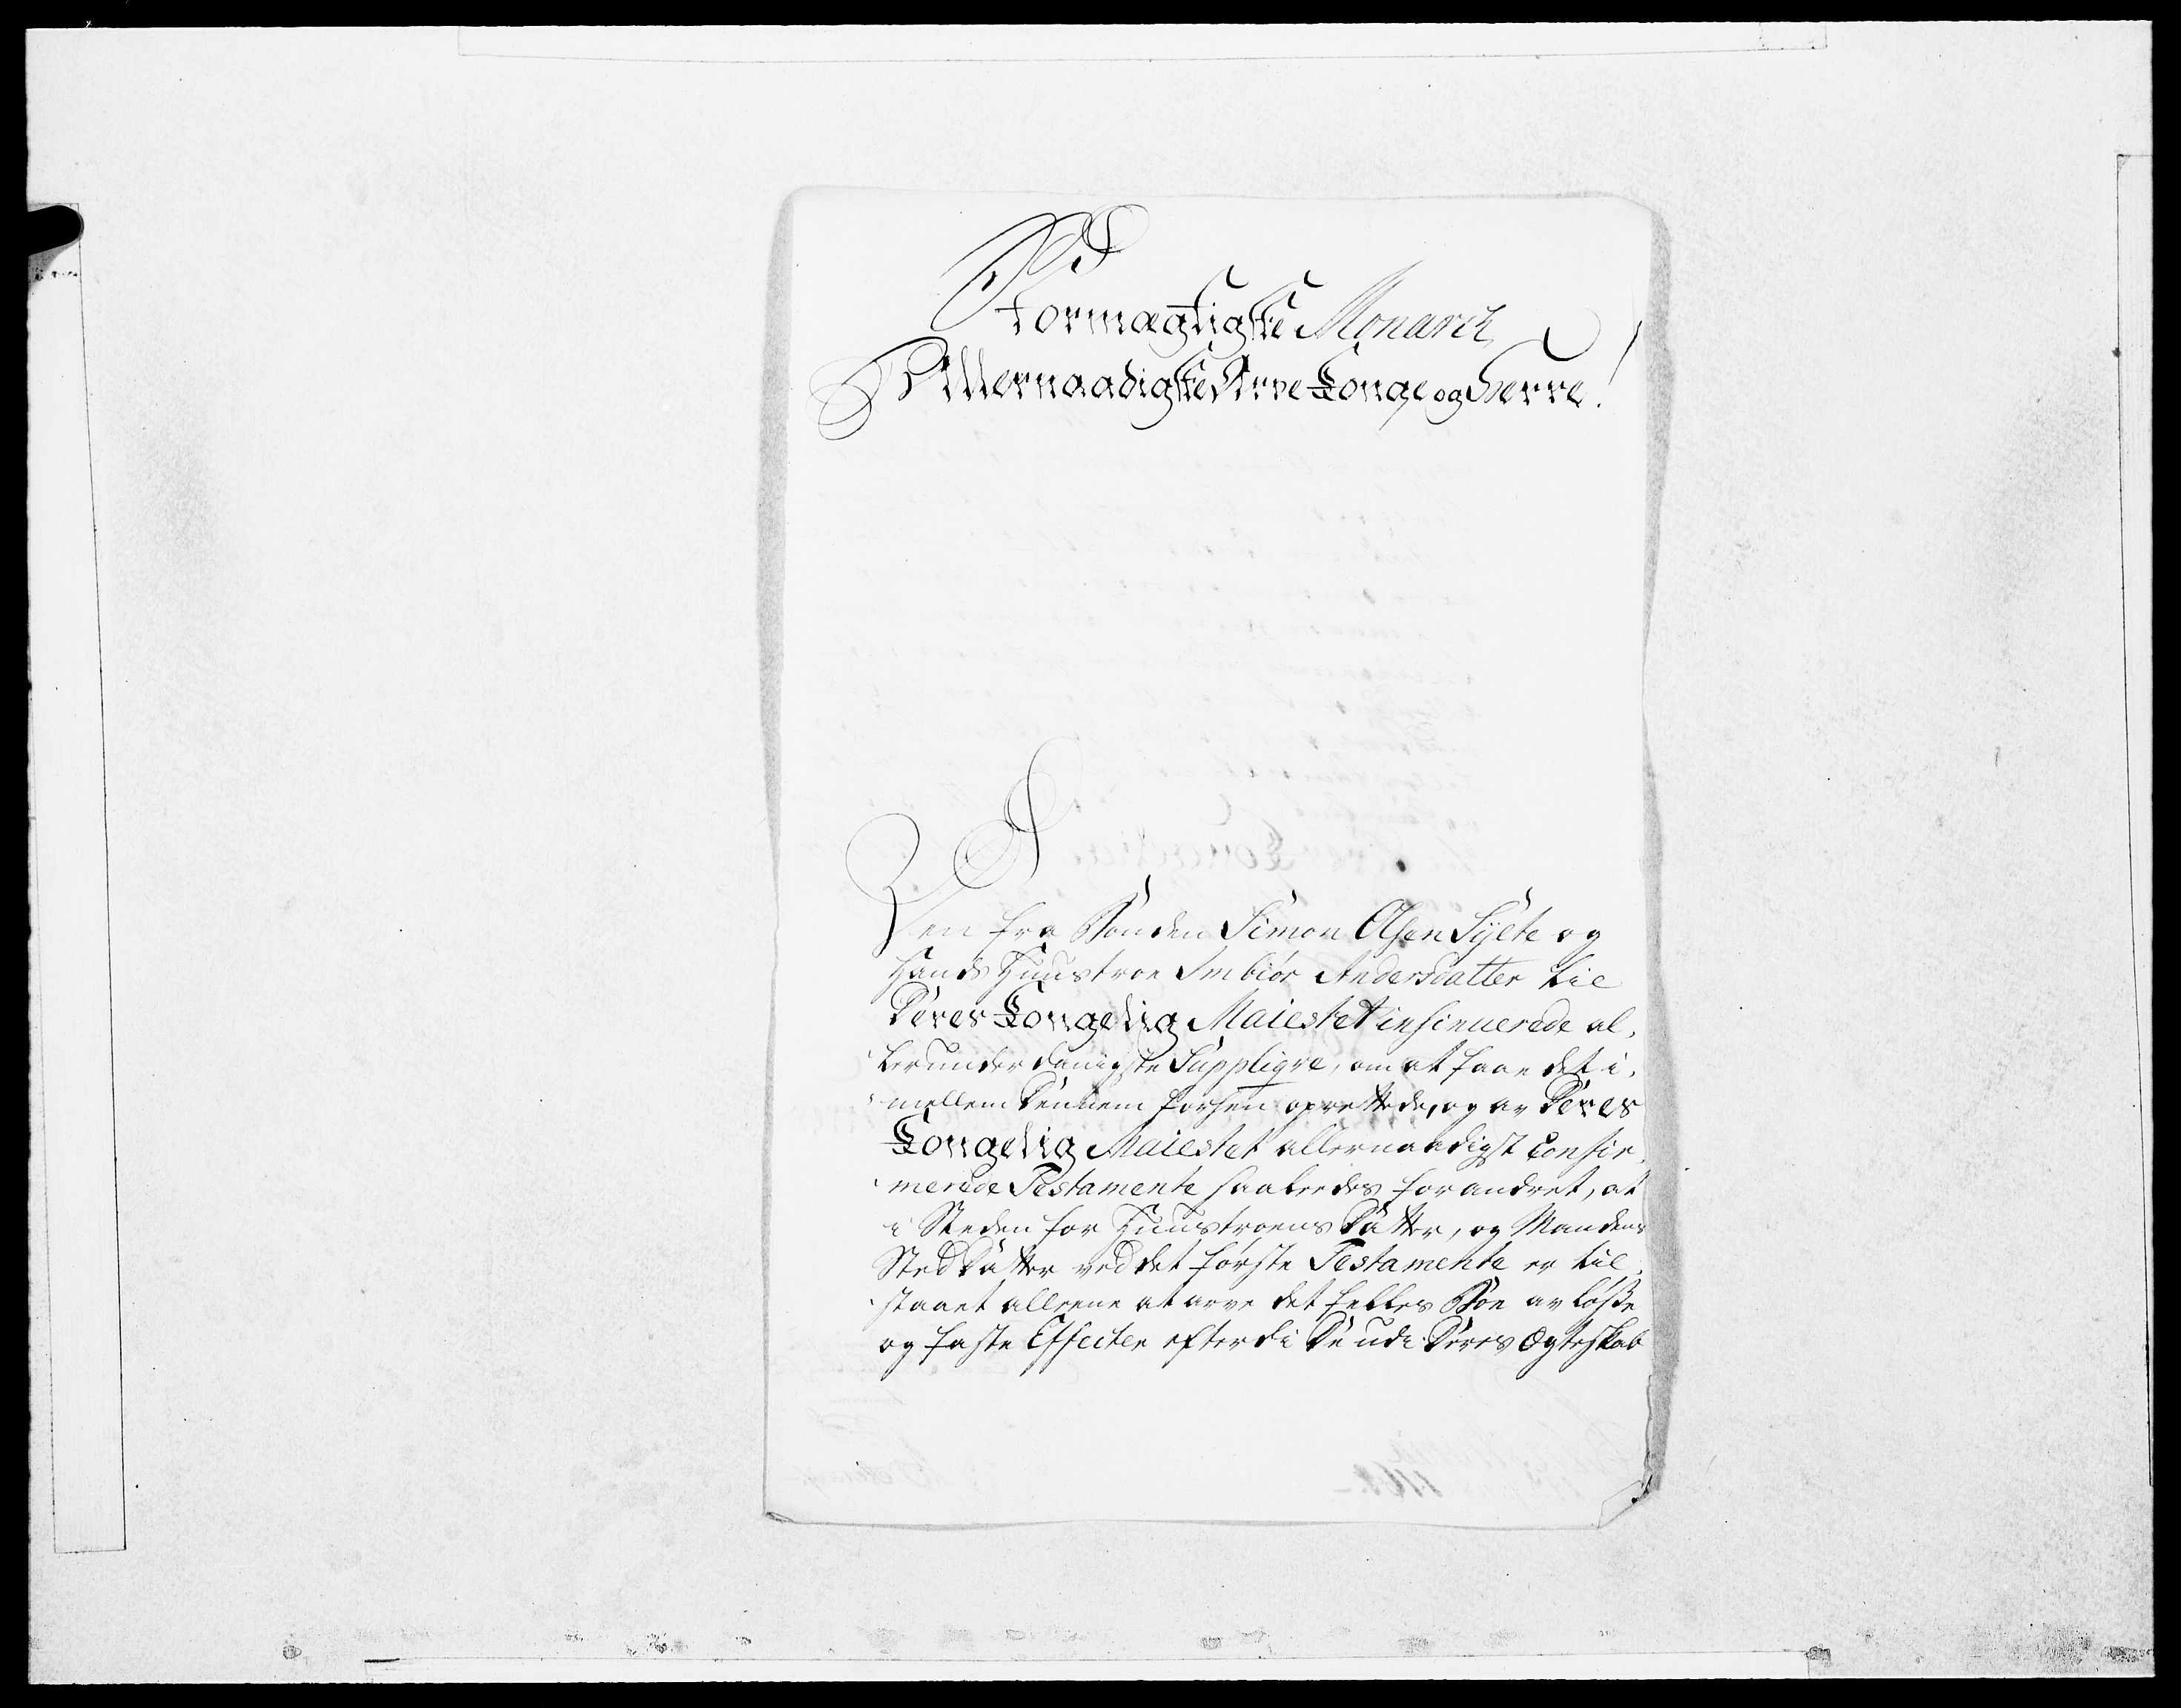 Stormægtigste Monarch
Allernaadigste Arve Konge og Herre!
Den fra Bonden Simon Olsen Syete og
Hands Huustroe Imbiør Andersdatter til
Deres Kongelig Maiestet insinuerede al,
lerunderdanigste Suppliqve, om at faae det i,
mellem Dennem forhen oprettede, og av Deres
Kongelig Maiestet allernaadigst Confir,
merede Testamente saaledes forandret, at
i Steden for Huustroens Datter, og Mandens
Sted Datter ved det første Testamente er til,
staaet alleene at arve det felles Boe av løse
og faste Effecter efterdi De udi Deres Ægteskab